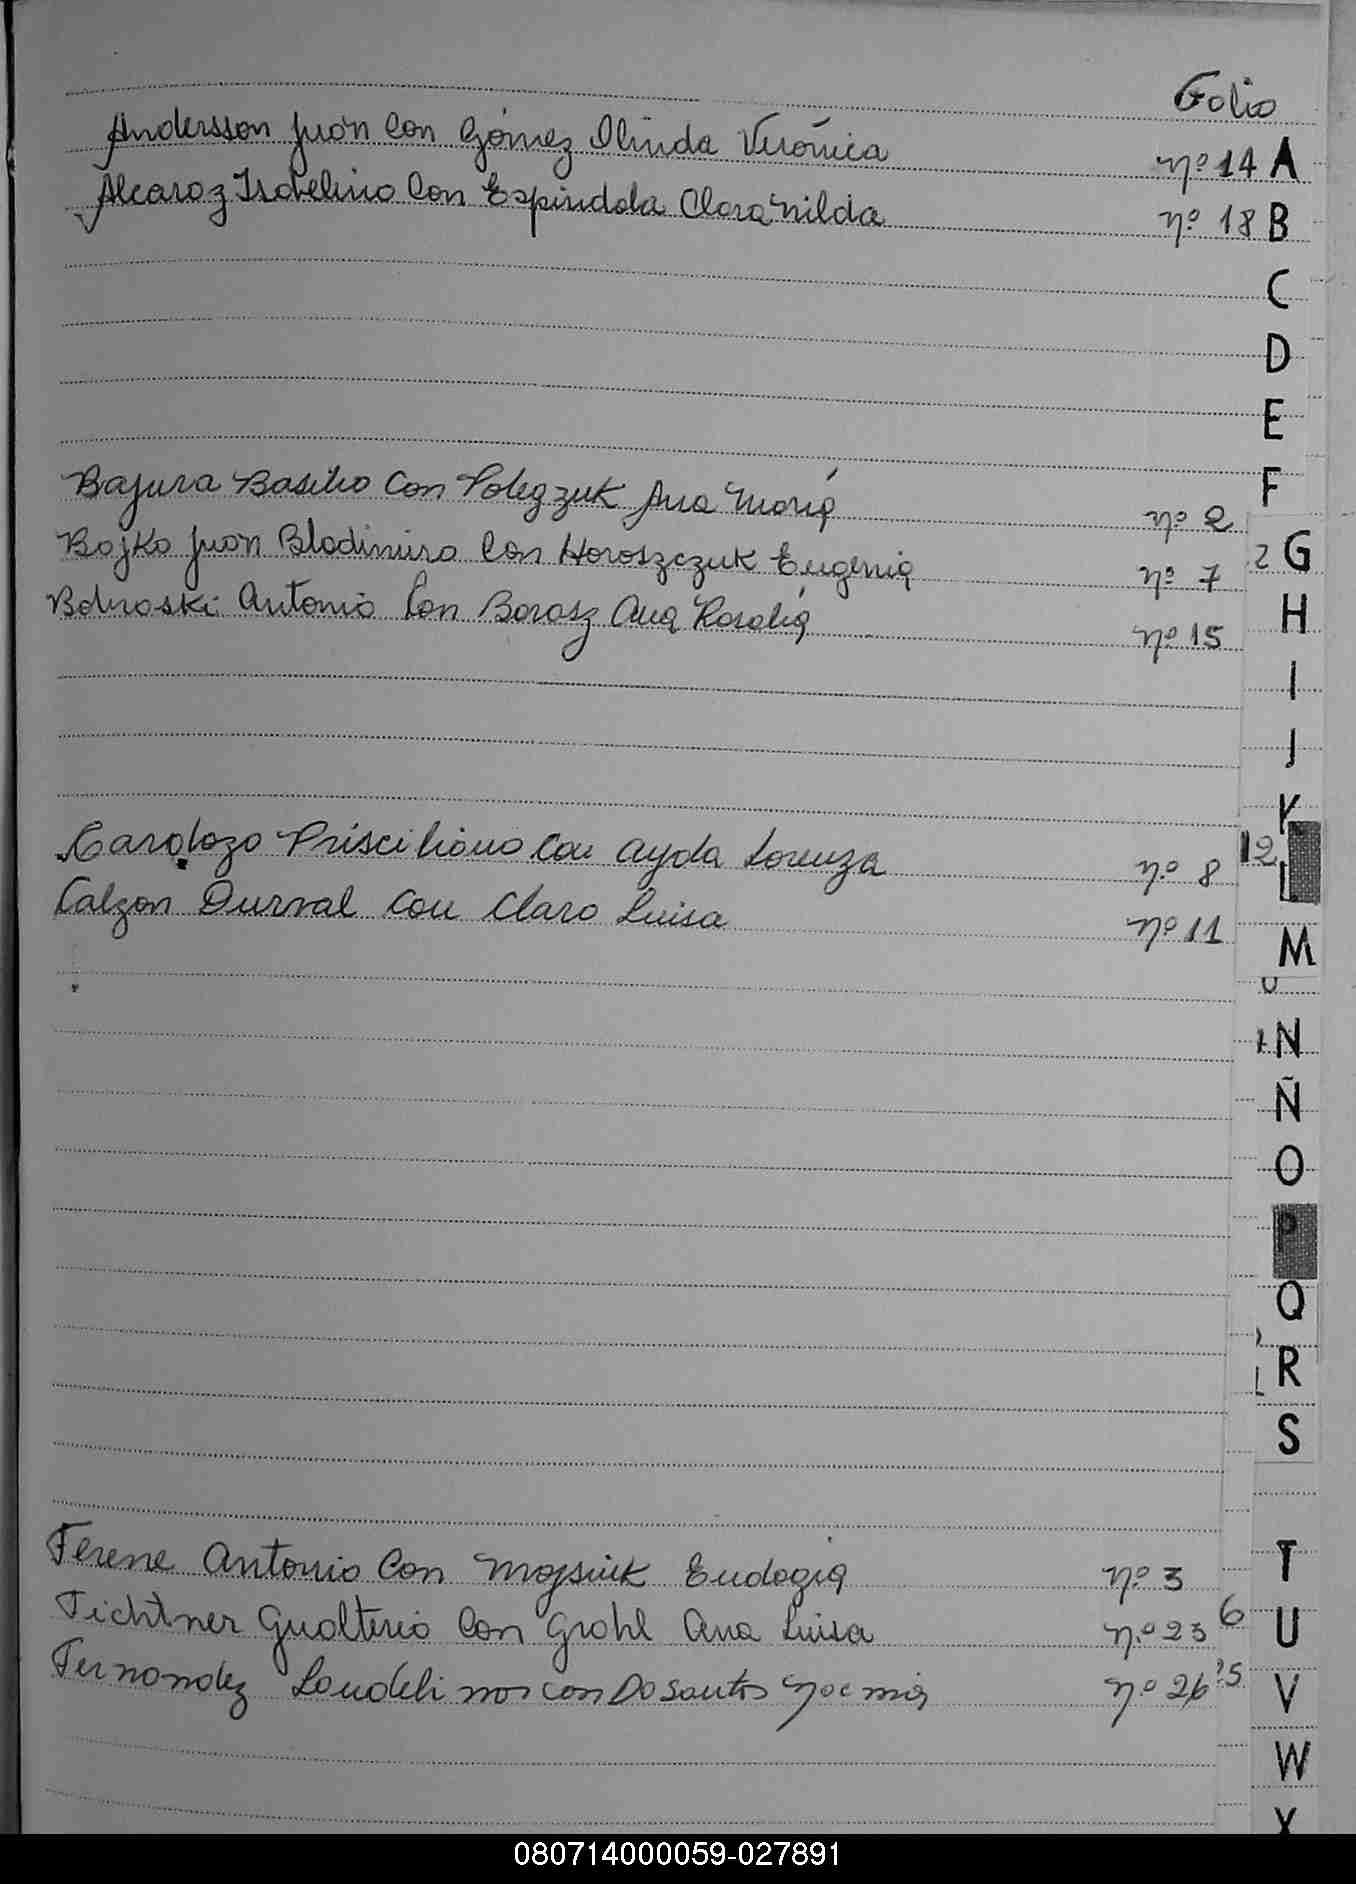 Folio
Andersson Juan Con Gómez Olinda Verónica nº 14 A
Alcaroz Isabelino Con Espindola Clara Nilda nº 18 B
C
D
E
F
Bajura Basilio Con Polegzuk Ana María nº 2
Bojko Juan Bladimiro Con Horoszczuk Eugenia nº 7 2 G
Bobroski Antonio Con Borosz Ana Rosalia nº 15 H
I
J
K
Cardozo Prisciliano Con Ayala Lorenza nº 8 12 L
Calzon Durval Con Claro Luisa nº 11 M
N
Ñ
O
P
Q
R
S
Ferene Antonio Con Mojsiuk Eudogia nº 3 T
Fichtner Gualterio Con Grohl Ana Luisa nº 23 6 U
Fernandez Laudelino con Do Santos Noemia nº 26 25 V
W
X
080714000059-027891